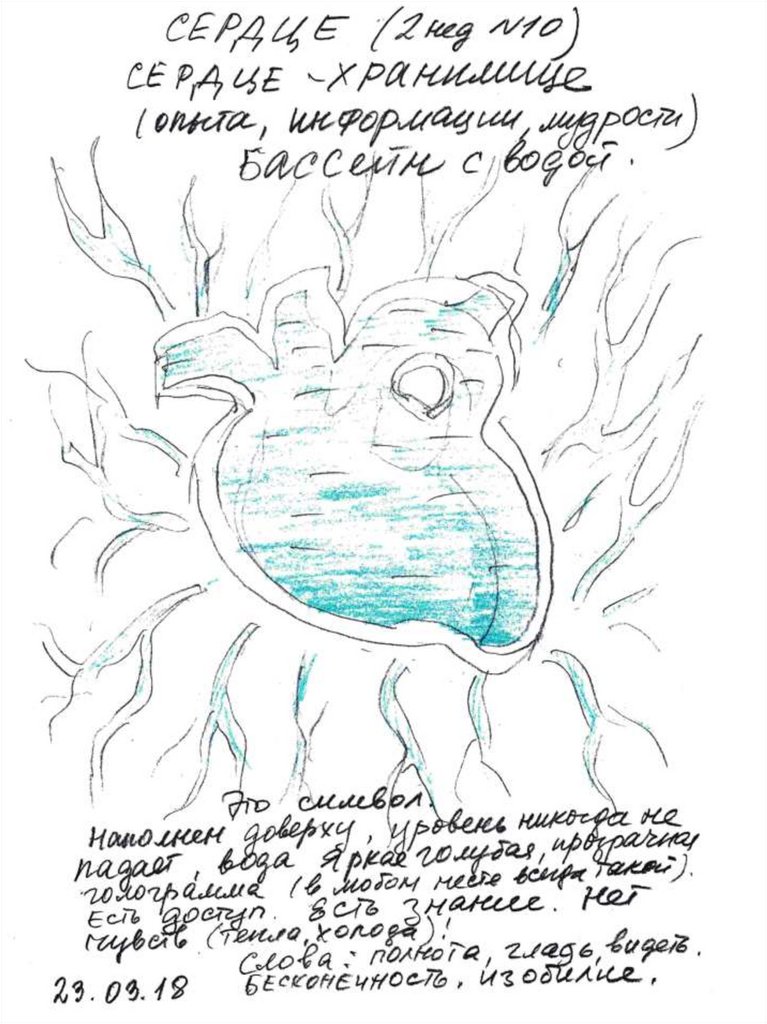 СЕРДЦЕ (2 нед N10)
СЕРДЦЕ - ХРАНИЛИЩЕ
(опыта, информации, мудрости)
БАССЕЙН с водой.
Это символ.
Наполнен доверху, уровень никогда не
падает, вода яркая голубая, прозрачная
голограмма (в любом месте всегда такой).
Есть доступ. Есть знание. Нет
чувств (тепла, холода)!
Слова: полнота, гладь, видеть.
23.03.18 БЕСКОНЕЧНОСТЬ, ИЗОБИЛИЕ.